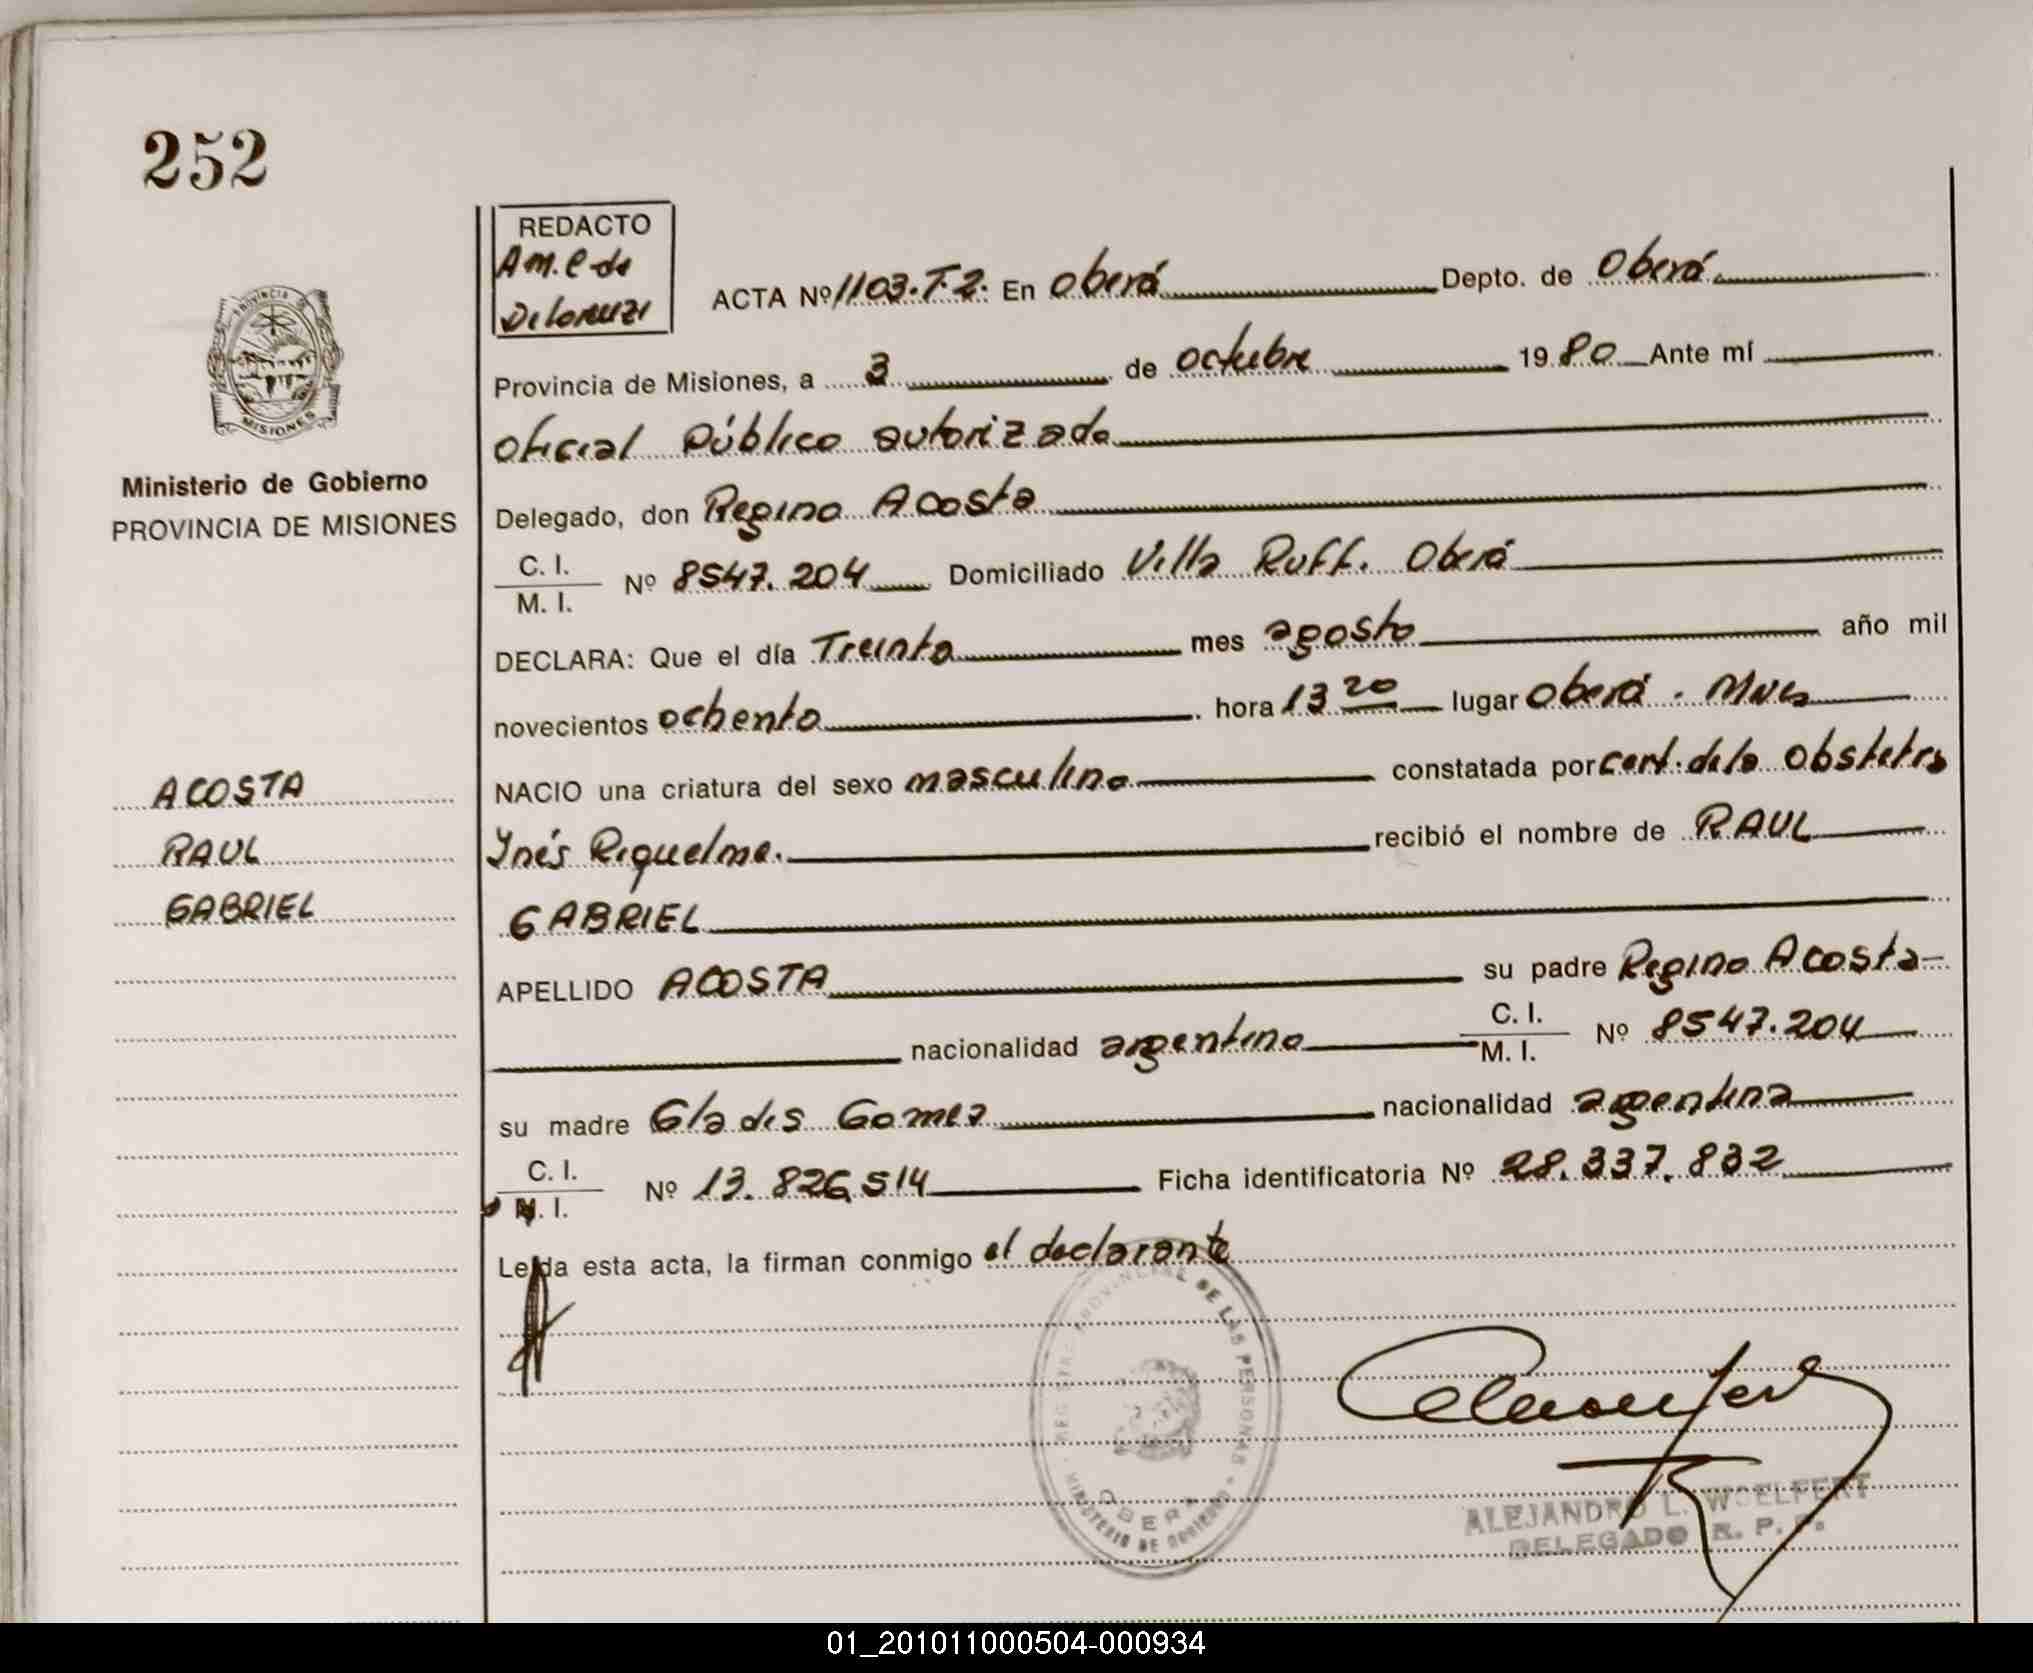 252
REDACTO
Am. C de
De Lorenzi
ACTA Nº 1103.T.2. En Oberá Depto. de Oberá
Provincia de Misiones, a 3 de octubre 1980 Ante mí
oficial Público autorizado
Delegado, don Regino Acosta
C. I.
M. I. Nº 8547.204 Domiciliado Villa Ruff. Oberá
DECLARA: Que el día Treinta mes agosto año mil
novecientos ochenta hora 13 20 lugar Oberá. Mnes
NACIO una criatura del sexo masculino constatada por cert. de la Obstetra
Inés Riquelme. recibió el nombre de RAUL
GABRIEL
APELLIDO ACOSTA su padre Regino Acosta
nacionalidad argentino C. I. M. I. Nº 8547.204
su madre Gladis Gomez nacionalidad argentina
C. I.
M. I. Nº 13.826.514 Ficha identificatoria Nº 28.337.832
Leída esta acta, la firman conmigo el declarante
PROVINCIA DE
MISIONES
Ministerio de Gobierno
PROVINCIA DE MISIONES
ACOSTA
RAUL
GABRIEL
REGISTRO PROVINCIAL DE LAS PERSONAS
OBERA
MINISTERIO DE GOBIERNO
ALEJANDRO L. WOELFERT
DELEGADO R. P. P.
01_201011000504-000934